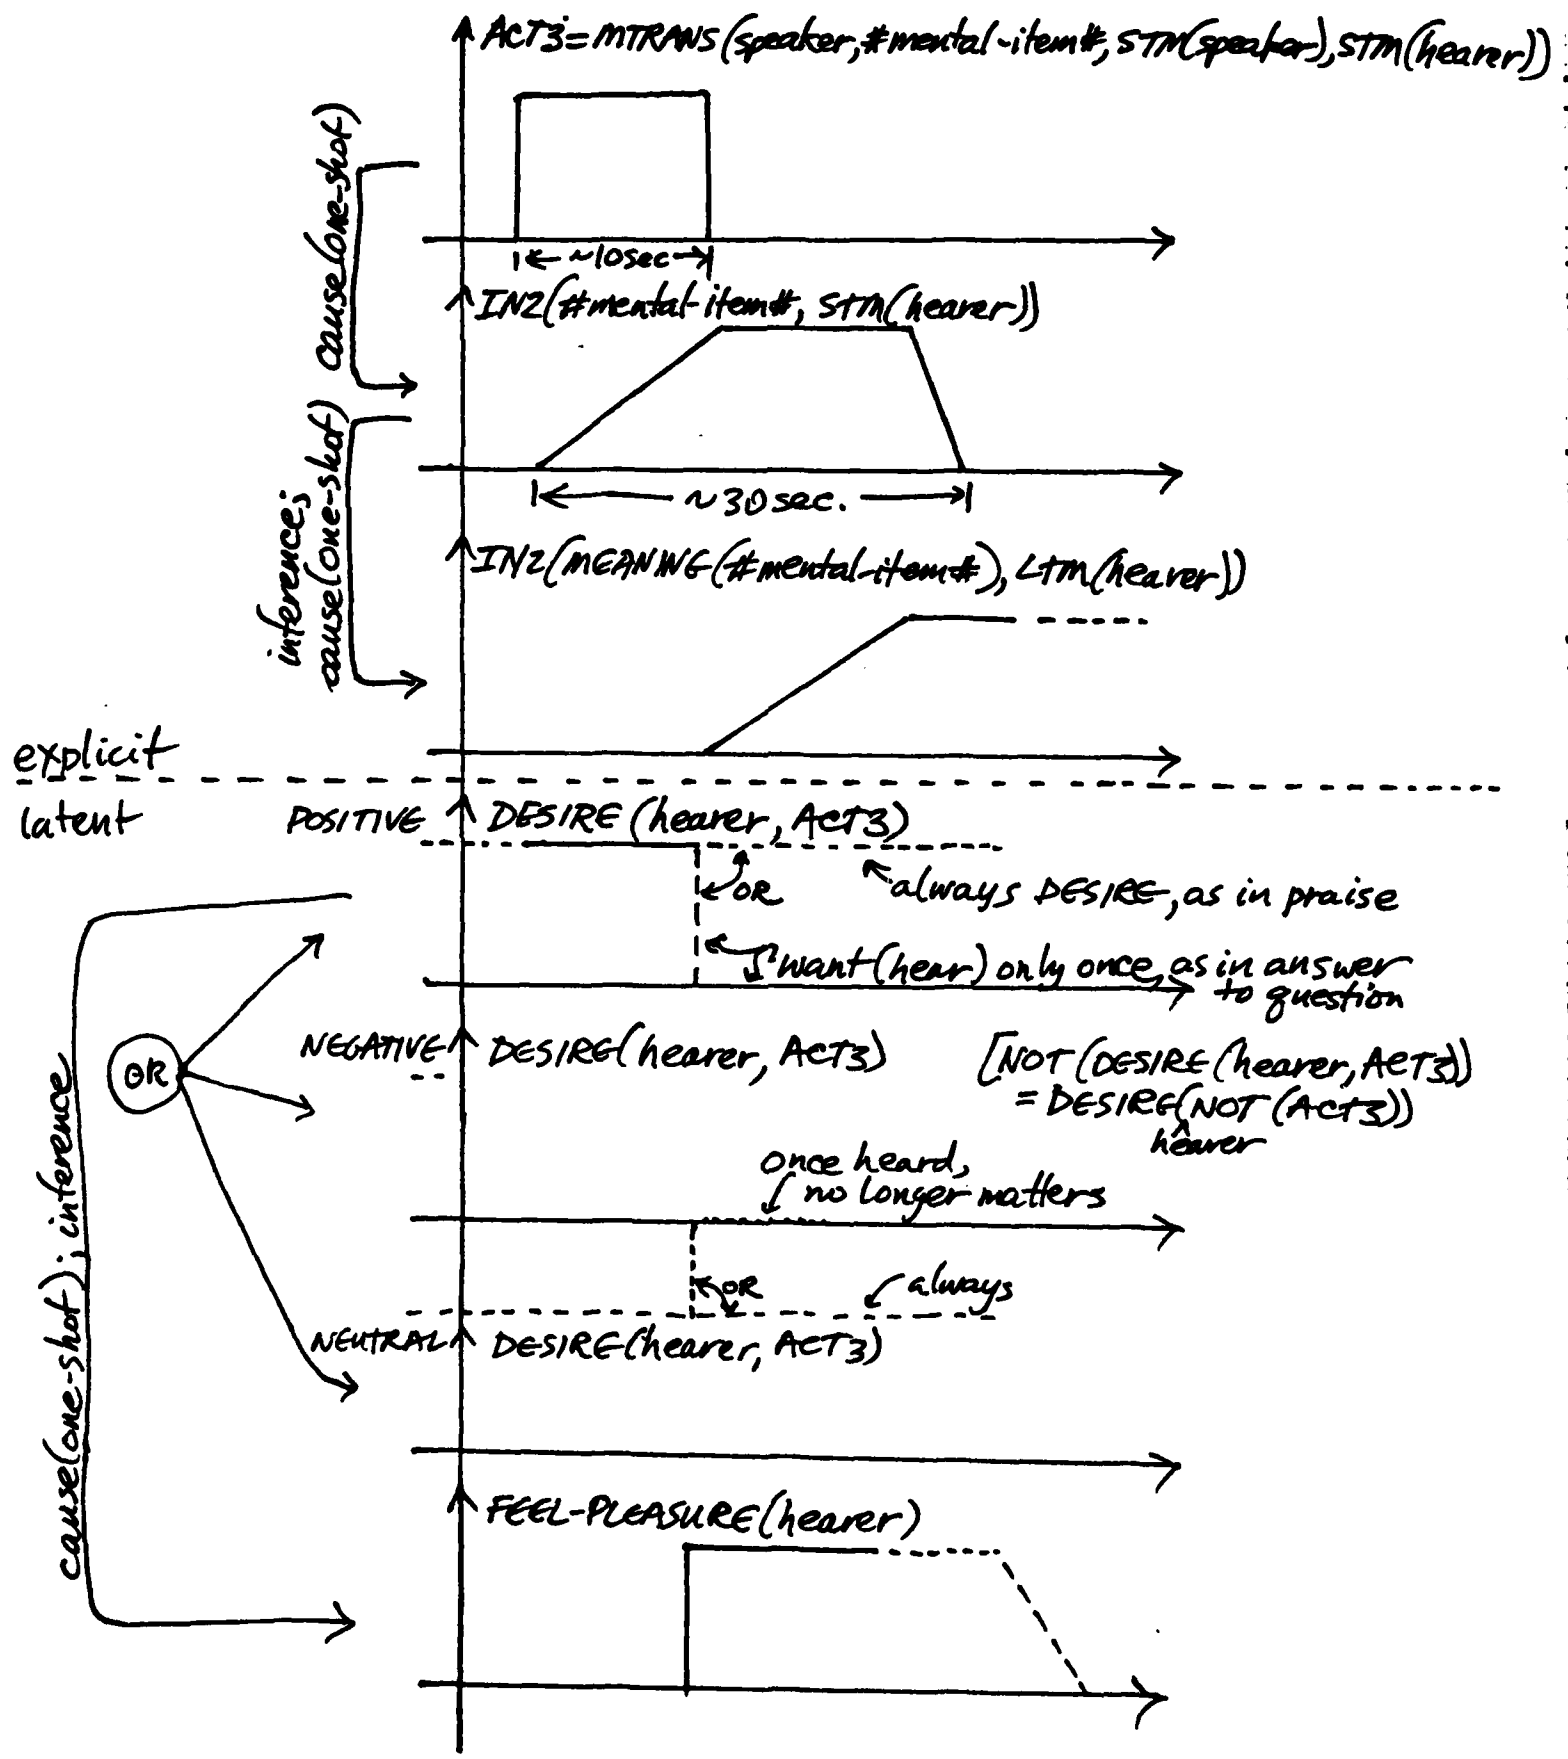 ACT3=MTRANS(speaker,#mental-item#,STM(speaker),STM(hearer))
cause(one-shot)
~10sec
IN2(#mental-item#, STM(hearer))
inference;
cause(one-shot)
~30sec.
IN2(MEANING(#mental-item#), LTM(hearer))
explicit
latent
POSITIVE
DESIRE(hearer, ACT3)
OR
always DESIRE, as in praise
want(hear) only once, as in answer
to question
NEGATIVE
DESIRE(hearer, ACT3)
[NOT(DESIRE(hearer, ACT3))
= DESIRE(NOT(ACT3))
^
hearer
OR
once heard,
no longer matters
OR
always
NEUTRAL
DESIRE(hearer, ACT3)
cause(one-shot); inference
FEEL-PLEASURE(hearer)